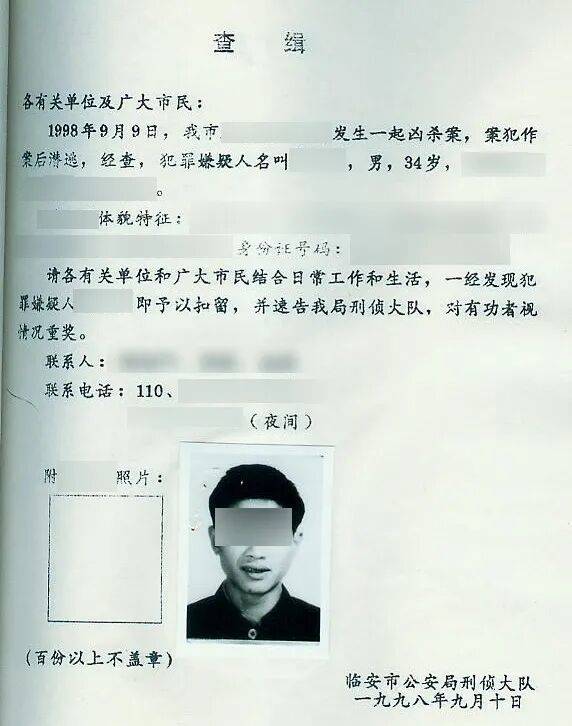 查 缉
各有关单位及广大市民：
1998年9月9日，我市 发生一起凶杀案，案犯作
案后潜逃，经查，犯罪嫌疑人名叫 ，男，34岁，
。
体貌特征：
身份证号码：
请各有关单位和广大市民结合日常工作和生活，一经发现犯
罪嫌疑人 即予以扣留，并速告我局刑侦大队，对有功者视
情况重奖。
联系人：
联系电话：110、
（夜间）
附 照片：
（百份以上不盖章）
临安市公安局刑侦大队
一九九八年九月十日